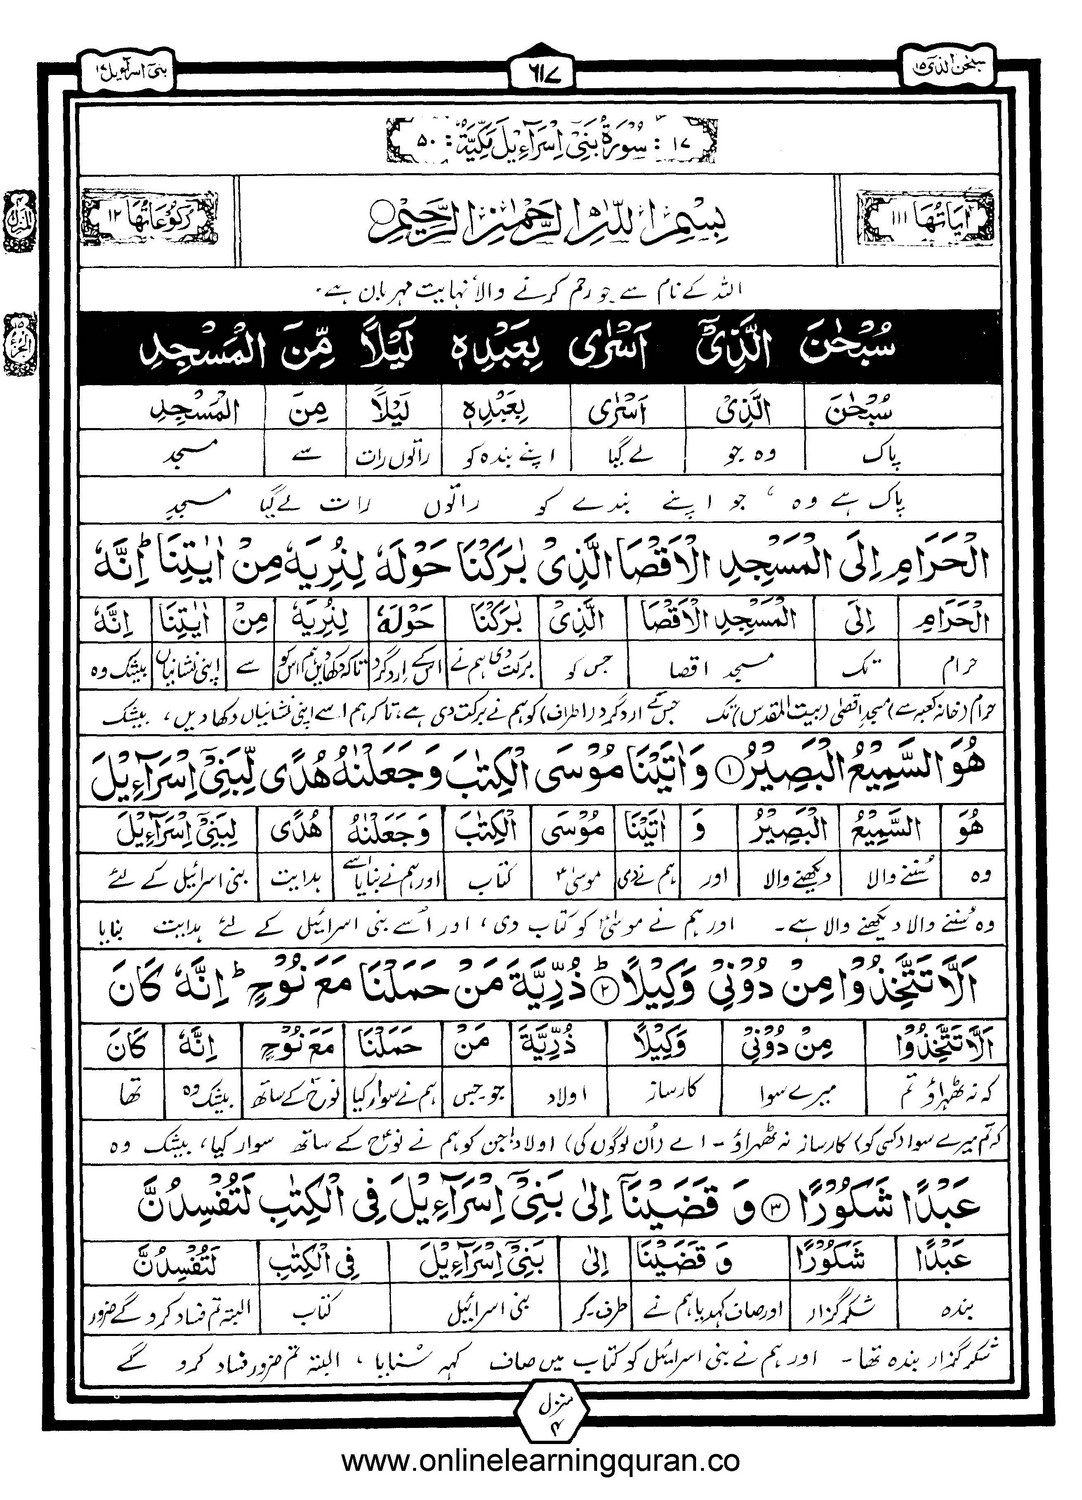 سبحٰن الذی ۱۵
۶۱۷
بنی اسرآءیل ۱۷
۱۷ : سُوْرَةُ بَنِیْٓ اِسْرَآءِیْلَ مَكِّیَّةٌ : ۵۰
اٰیَاتُهَا ۱۱۱
بِسْمِ اللّٰهِ الرَّحْمٰنِ الرَّحِیْمِ
رُكُوْعَاتُهَا ۱۲
اللہ کے نام سے جو رحم کرنے والا نہایت مہربان ہے۔
سُبْحٰنَ الَّذِیْٓ اَسْرٰی بِعَبْدِهٖ لَیْلًا مِّنَ الْمَسْجِدِ
سُبْحٰنَ الَّذِیْٓ اَسْرٰی بِعَبْدِهٖ لَیْلًا مِنَ الْمَسْجِدِ
پاک وہ جو لے گیا اپنے بندہ کو راتوں رات سے مسجد
پاک ہے وہ ، جو اپنے بندے کو راتوں رات لے گیا مسجدِ
الْحَرَامِ اِلَی الْمَسْجِدِ الْاَقْصَا الَّذِیْ بٰرَكْنَا حَوْلَهٗ لِنُرِیَهٗ مِنْ اٰیٰتِنَا ؕ اِنَّهٗ
الْحَرَامِ اِلَی الْمَسْجِدِ الْاَقْصَا الَّذِیْ بٰرَكْنَا حَوْلَهٗ لِنُرِیَهٗ مِنْ اٰیٰتِنَا اِنَّهٗ
حرام تک مسجد اقصا جس کو برکت دی ہم نے اس کے اردگرد تاکہ دکھا دیں ہم اس کو سے اپنی نشانیاں بیشک وہ
حرام (خانہ کعبہ سے) مسجدِ اقصٰی (بیت المقدس) تک جس کے اردگرد (اطراف) کو ہم نے برکت دی ہے، تاکہ ہم اسے اپنی نشانیاں دکھا دیں، بیشک
هُوَ السَّمِیْعُ الْبَصِیْرُ ۱ وَ اٰتَیْنَا مُوْسَی الْكِتٰبَ وَ جَعَلْنٰهُ هُدًی لِّبَنِیْٓ اِسْرَآءِیْلَ
هُوَ السَّمِیْعُ الْبَصِیْرُ وَ اٰتَیْنَا مُوْسَی الْكِتٰبَ وَ جَعَلْنٰهُ هُدًی لِبَنِیْٓ اِسْرَآءِیْلَ
وہ سُننے والا دیکھنے والا اور ہم نے دی موسٰیؑ کتاب اور ہم نے بنایا اسے ہدایت بنی اسرائیل کے لئے
وہ سُننے والا دیکھنے والا ہے۔ اور ہم نے موسٰیؑ کو کتاب دی، اور اُسے بنی اسرائیل کے لئے ہدایت بنایا
اَلَّا تَتَّخِذُوْا مِنْ دُوْنِیْ وَكِیْلًا ؕ ۲ ذُرِّیَّةَ مَنْ حَمَلْنَا مَعَ نُوْحٍ ؕ اِنَّهٗ كَانَ
اَلَّا تَتَّخِذُوْا مِنْ دُوْنِیْ وَكِیْلًا ذُرِّیَّةَ مَنْ حَمَلْنَا مَعَ نُوْحٍ اِنَّهٗ كَانَ
کہ نہ ٹھہراؤ تم میرے سوا کارساز اولاد جو۔جس ہم نے سوار کیا نوحؑ کے ساتھ بیشک وہ تھا
کہ تم میرے سوا (کسی کو) کارساز نہ ٹھہراؤ۔ اے (اُن لوگوں کی) اولاد! جن کو ہم نے نوحؑ کے ساتھ سوار کیا، بیشک وہ
عَبْدًا شَكُوْرًا ۳ وَ قَضَیْنَآ اِلٰی بَنِیْٓ اِسْرَآءِیْلَ فِی الْكِتٰبِ لَتُفْسِدُنَّ
عَبْدًا شَكُوْرًا وَ قَضَیْنَآ اِلٰی بَنِیْٓ اِسْرَآءِیْلَ فِی الْكِتٰبِ لَتُفْسِدُنَّ
بندہ شکر گزار اور صاف کہدیا ہم نے طرف۔کو بنی اسرائیل کتاب البتہ تم فساد کرو گے ضرور
شکر گزار بندہ تھا۔ اور ہم نے بنی اسرائیل کو کتاب میں صاف کہہ سُنایا، البتہ تم ضرور فساد کرو گے
منزل ۴
www.onlinelearningquran.co